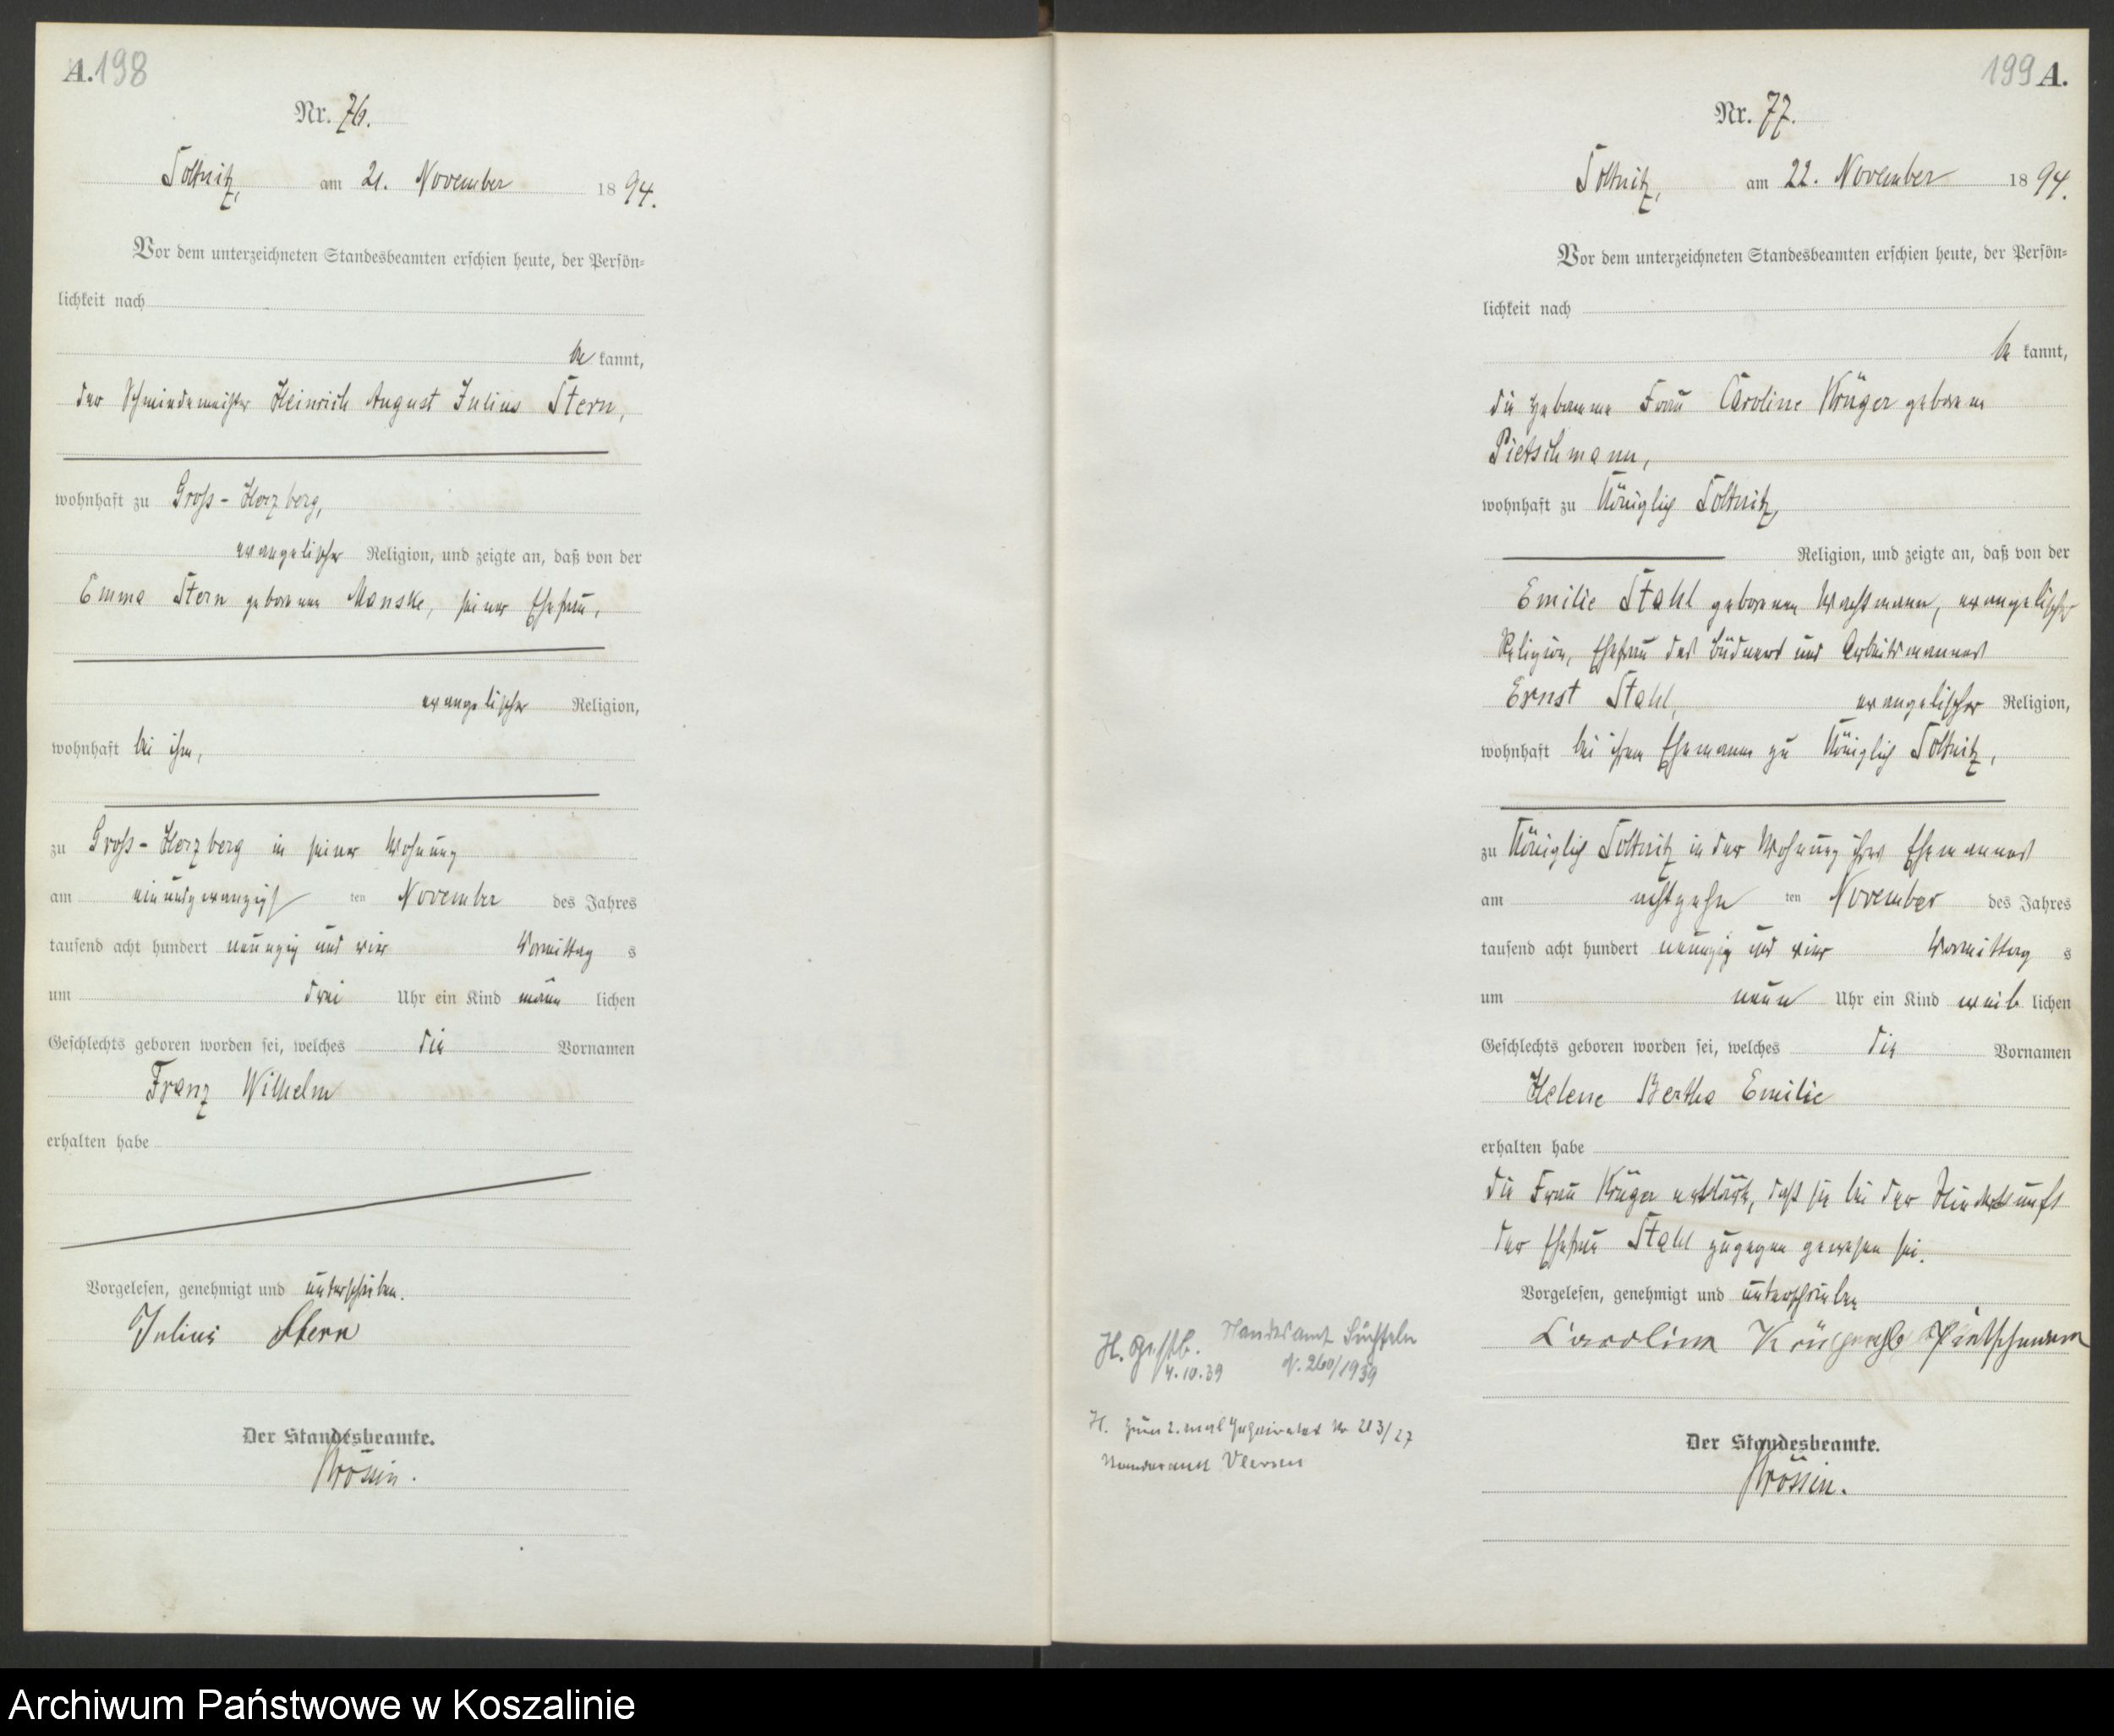 A. 198
Nr. 76.
Soltnitz, am 21. November 1894.
Vor dem unterzeichneten Standesbeamten erschien heute, der Persön-
lichkeit nach
be kannt,
der Schmiedemeister Heinrich August Julius Stern,
wohnhaft zu Gross-Herzberg,
evangelischer Religion, und zeigte an, daß von der
Emma Stern geborenen Manske, seiner Ehefrau,
evangelischer Religion,
wohnhaft bei ihm,
zu Gross-Herzberg in seiner Wohnung
am einundzwanzigsten November des Jahres
tausend acht hundert neunzig und vier Vormittags
um drei Uhr ein Kind männlichen
Geschlechts geboren worden sei, welches die Vornamen
Franz Wilhelm
erhalten habe
Vorgelesen, genehmigt und unterschrieben.
Julius Stern
Der Standesbeamte.
Krössin.
199 A.
Nr. 77.
Soltnitz, am 22. November 1894.
Vor dem unterzeichneten Standesbeamten erschien heute, der Persön-
lichkeit nach
be kannt,
die Hebamme Frau Caroline Krüger geborene
Pietschmann,
wohnhaft zu Königlich Soltnitz,
Religion, und zeigte an, daß von der
Emilie Stahl geborenen, evangelischer
Religion, Ehefrau des Büdners und Arbeitsmannes
Ernst Stahl, evangelischer Religion,
wohnhaft bei ihrem Ehemann zu Königlich Soltnitz,
zu Königlich Soltnitz in der Wohnung ihres Ehemannes
am achtzehnten November des Jahres
tausend acht hundert neunzig und vier Vormittags
um neun Uhr ein Kind weiblichen
Geschlechts geboren worden sei, welches die Vornamen
Helene Bertha Emilie
erhalten habe
die Frau Krüger erklärte, daß sie bei der Niederkunft
der Ehefrau Stahl zugegen gewesen sei.
Vorgelesen, genehmigt und unterschrieben
Carolina Krüger Pietschmann
Der Standesbeamte.
Krössin.
H. gestb. Standesamt Süchteln
4.10.39 N. 260/1939
H. zum 2. mal geheiratet Nr 213/27
Standesamt Viersen
Archiwum Państwowe w Koszalinie